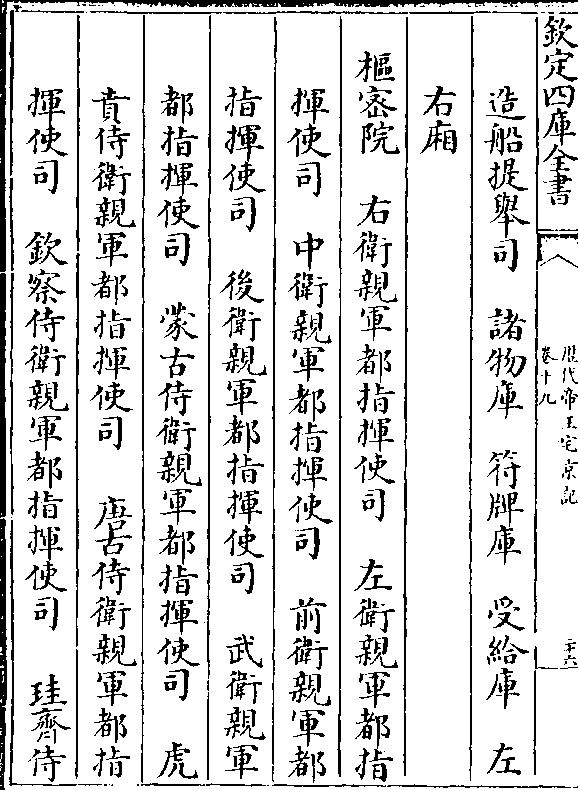 欽定四庫全書
歷代帝王宅京記
卷十九
二十六
造船提舉司　諸物庫　符牌庫　受給庫　左
右廂
樞密院　右衛親軍都指揮使司　左衛親軍都指
揮使司　中衛親軍都指揮使司　前衛親軍都
指揮使司　後衛親軍都指揮使司　武衛親軍
都指揮使司　蒙古侍衛親軍都指揮使司　虎
賁侍衛親軍都指揮使司　唐古侍衛親軍都指
揮使司　欽察侍衛親軍都指揮使司　珪齊侍